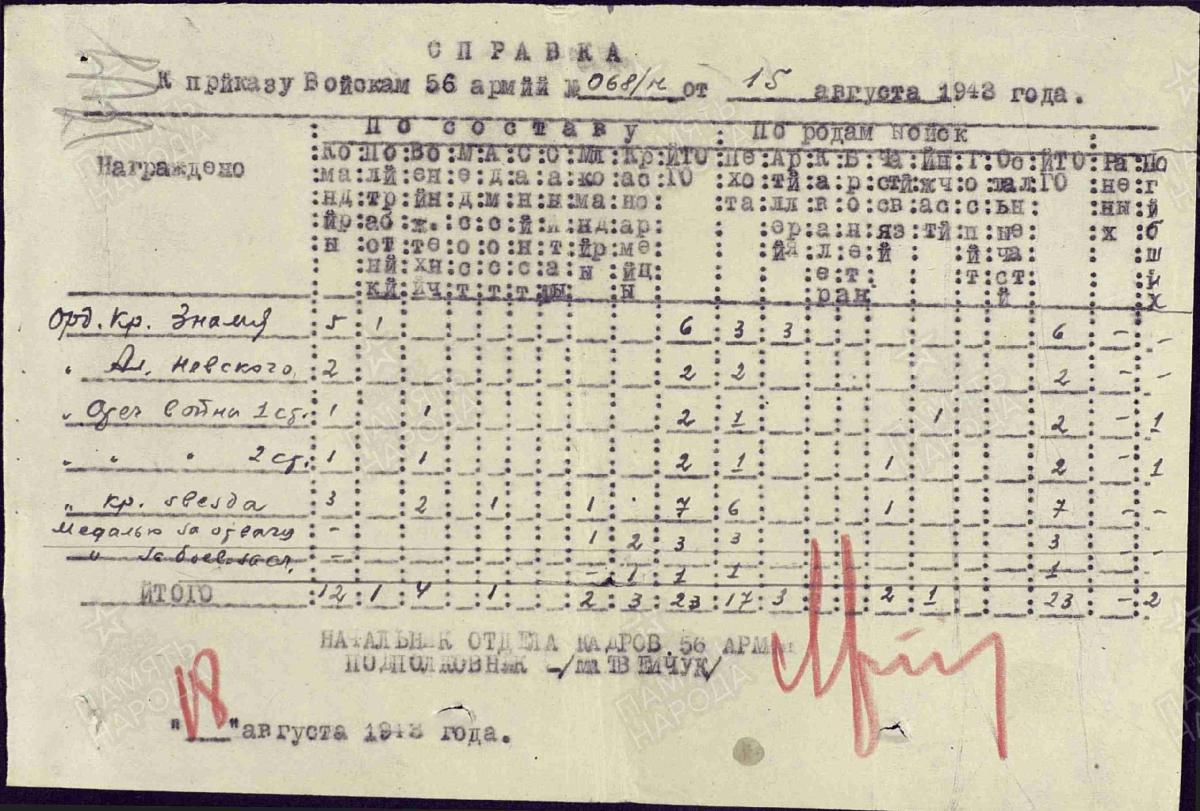 СПРАВКА
К приказу Войскам 56 армии № 068/н от 15 августа 1943 года.
По составу По родам войск
Награждено
Командиры Политработники Военинж. технич Медсост Адмсост Мл командиры Красноармейцы ИТОГО Пехота Артиллерия Кавал Части связи Инжчасти Остальные части ИТОГО Раненых Погибших
Орд. Кр. Знамя 5 1 6 3 3 6 - -
" Ал. Невского 2 2 2 2 - -
" Отеч войны 1 ст. 1 1 2 1 1 2 - 1
" " " 2 ст. 1 1 2 1 1 2 - 1
" Кр. звезда 3 2 1 1 7 6 1 7 - -
Медалью за отвагу - 1 2 3 3 3 -
" за боев. засл. - - 1 1 1 1
ИТОГО 12 1 4 1 2 3 23 17 3 2 1 23 - 2
НАЧАЛЬНИК ОТДЕЛА КАДРОВ 56 АРМИИ
ПОДПОЛКОВНИК -/МАТВЕЙЧУК/
"18" августа 1943 года.
ПАМЯТЬ
НАРОДА